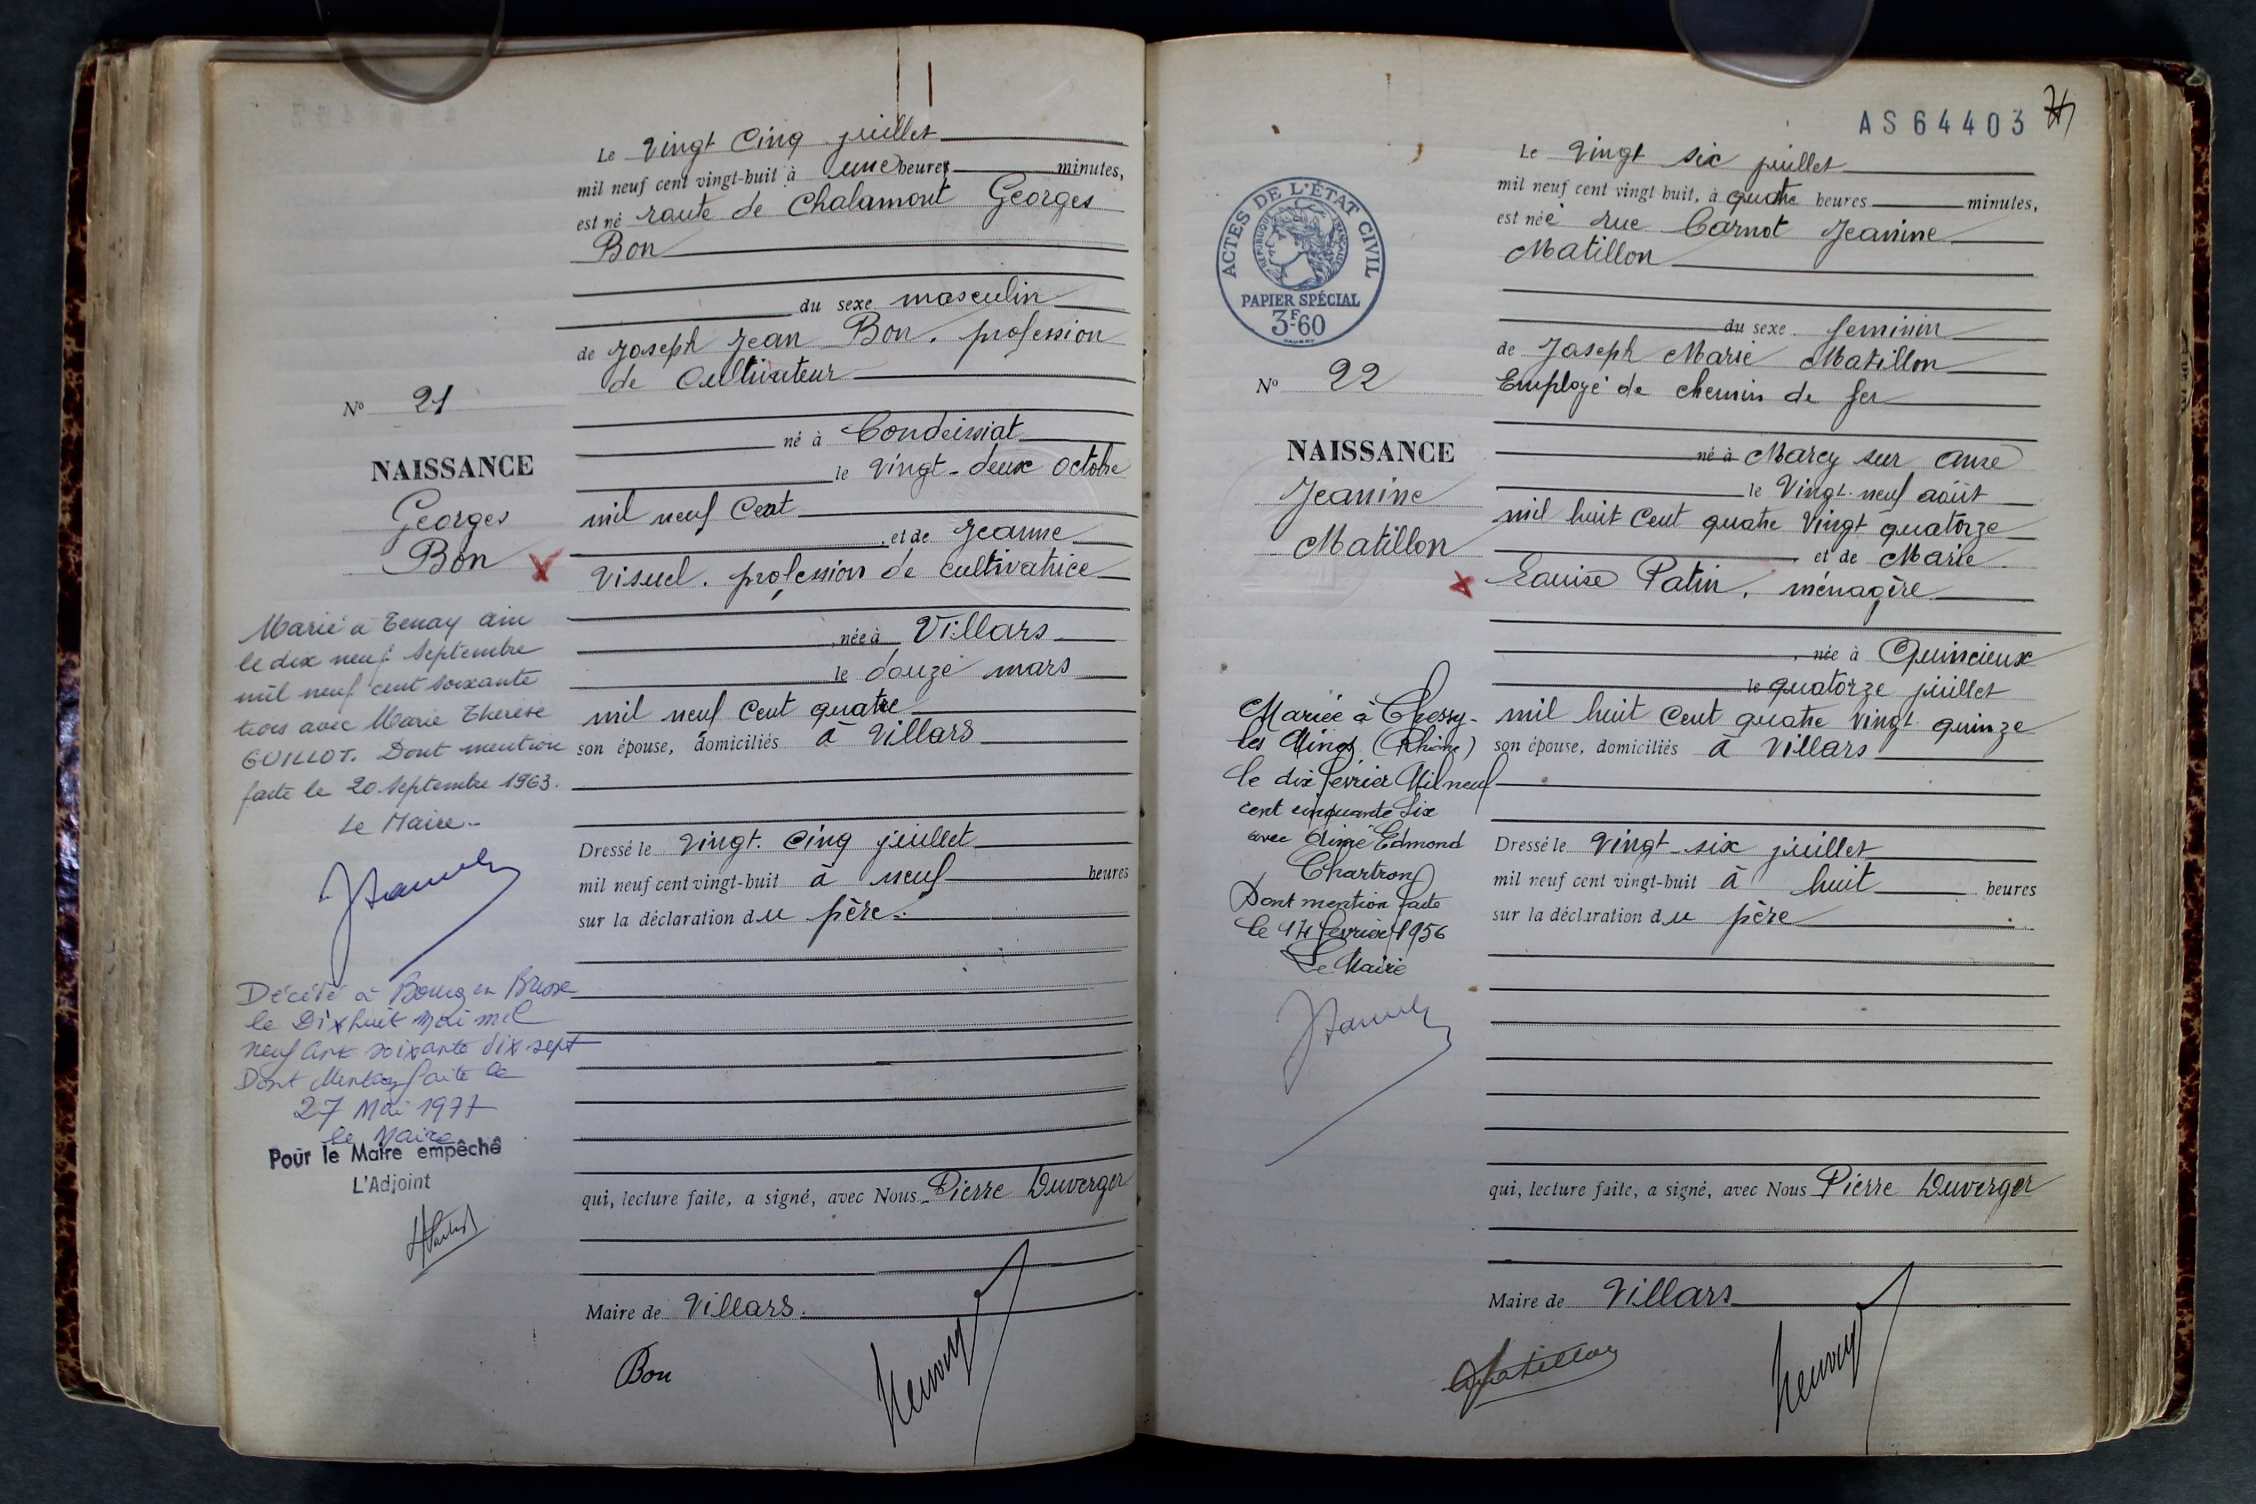 Le Vingt Cinq juillet
mil neuf cent vingt-huit à une heures minutes,
est né route de Chalamont Georges
Bon
du sexe masculin
de Joseph Jean Bon, profession
de Cultivateur
né à Condeissiat
le vingt-deux octobre
mil neuf Cent
et de Jeanne
Visuel, profession de cultivatrice
née à Villars
le douze mars
mil neuf Cent quatre
son épouse, domiciliés à Villars
Dressé le Vingt-Cinq juillet
mil neuf cent vingt-huit à neuf heures
sur la déclaration du père
qui, lecture faite, a signé, avec Nous Pierre Duverger
Maire de Villars.
Bon
N° 21
NAISSANCE
Georges
Bon
Marié à Tenay Ain
le dix neuf Septembre
mil neuf cent soixante
trois avec Marie Therese
GUILLOT. Dont mention
faite le 20 Septembre 1963.
Le Maire
Décédé à Bourg en Bresse
le Dix huit Mai mil
neuf cent soixante dix sept
Dont Mention faite le
27 Mai 1977
le Maire
Pour le Maire empêché
L'Adjoint
AS64403
Le Vingt six juillet
mil neuf cent vingt-huit, à quatre heures minutes,
est née rue Carnot Jeanine
Matillon
du sexe feminin
de Joseph Marie Matillon
Employé de chemin de fer
né à Marcy sur Anse
le Vingt-neuf août
mil huit Cent quatre Vingt quatorze
et de Marie
Louise Patin, ménagère
née à Quincieux
le quatorze juillet
mil huit Cent quatre Vingt quinze
son épouse, domiciliés à Villars
Dressé le Vingt-six juillet
mil neuf cent vingt-huit à huit heures
sur la déclaration du père
qui, lecture faite, a signé, avec Nous Pierre Duverger
Maire de Villars
Matillon
ACTES DE L'ÉTAT CIVIL
RÉPUBLIQUE FRANÇAISE
PAPIER SPÉCIAL
3F60
N° 22
NAISSANCE
Jeanine
Matillon
Mariée à Chessy-
les Mines (Rhône)
le dix février Mil neuf
cent cinquante Six
avec Aimé Edmond
Chartron
Dont mention faite
le 14 février 1956
Le Maire